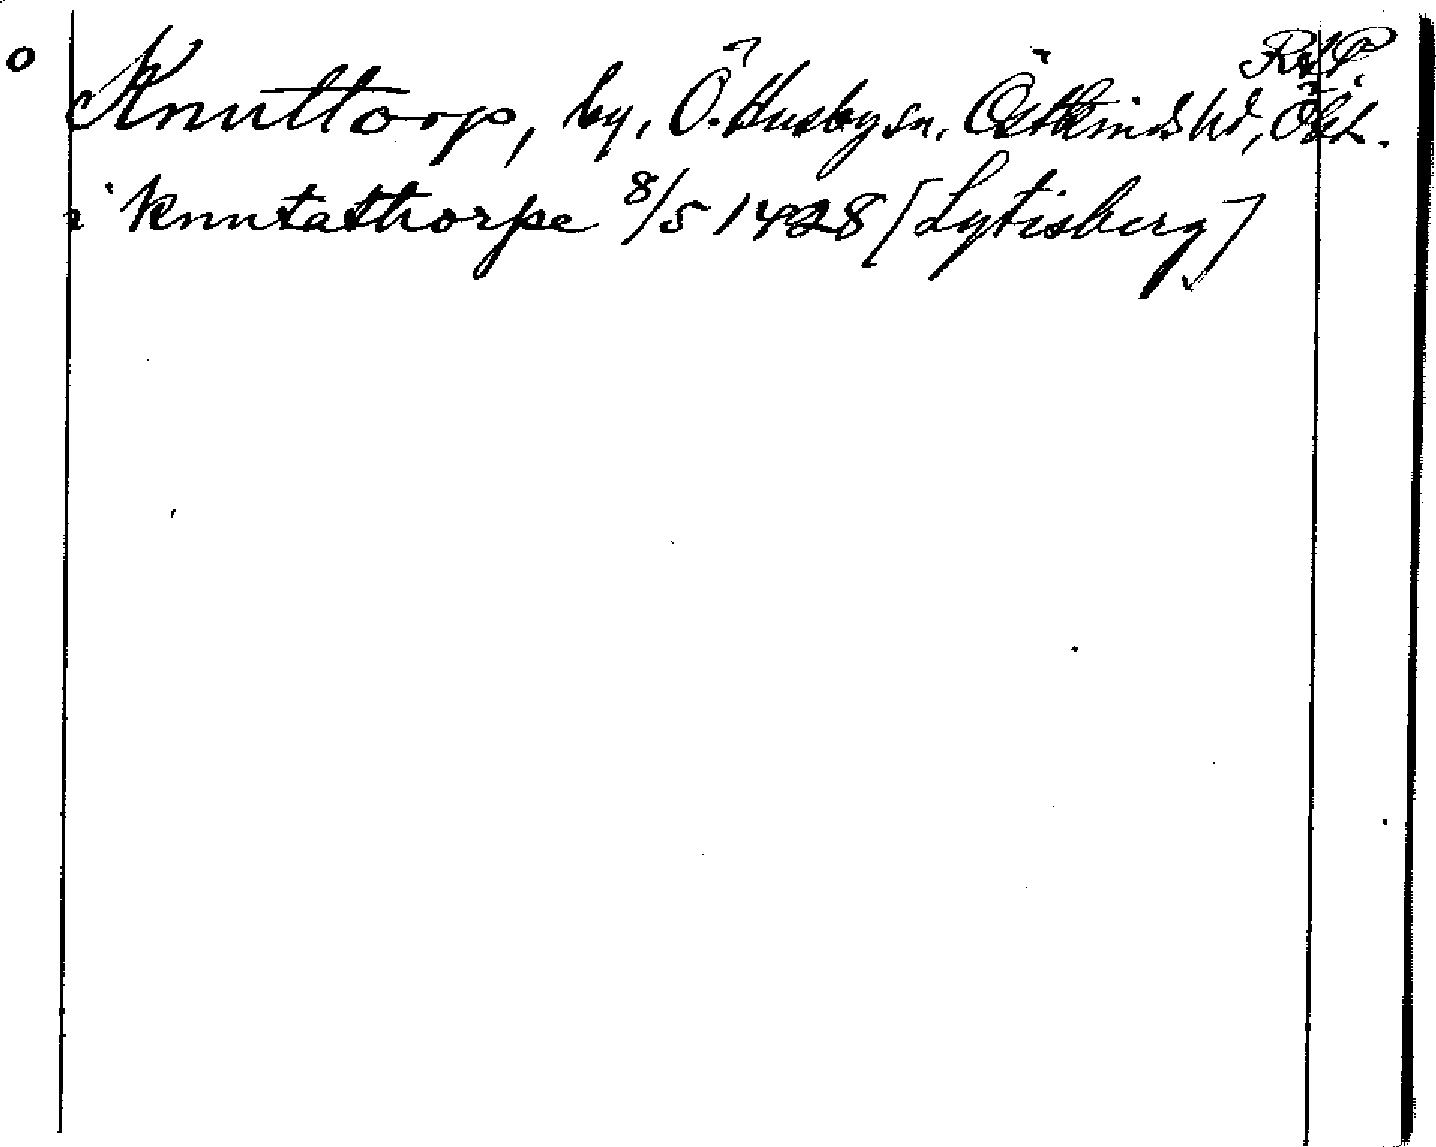 RAP.
Knuttorp, by, Ö. Husby sn, Östkinds hd, Ögl.
i knutathorpe 8/5 1428 [Lytisberg]